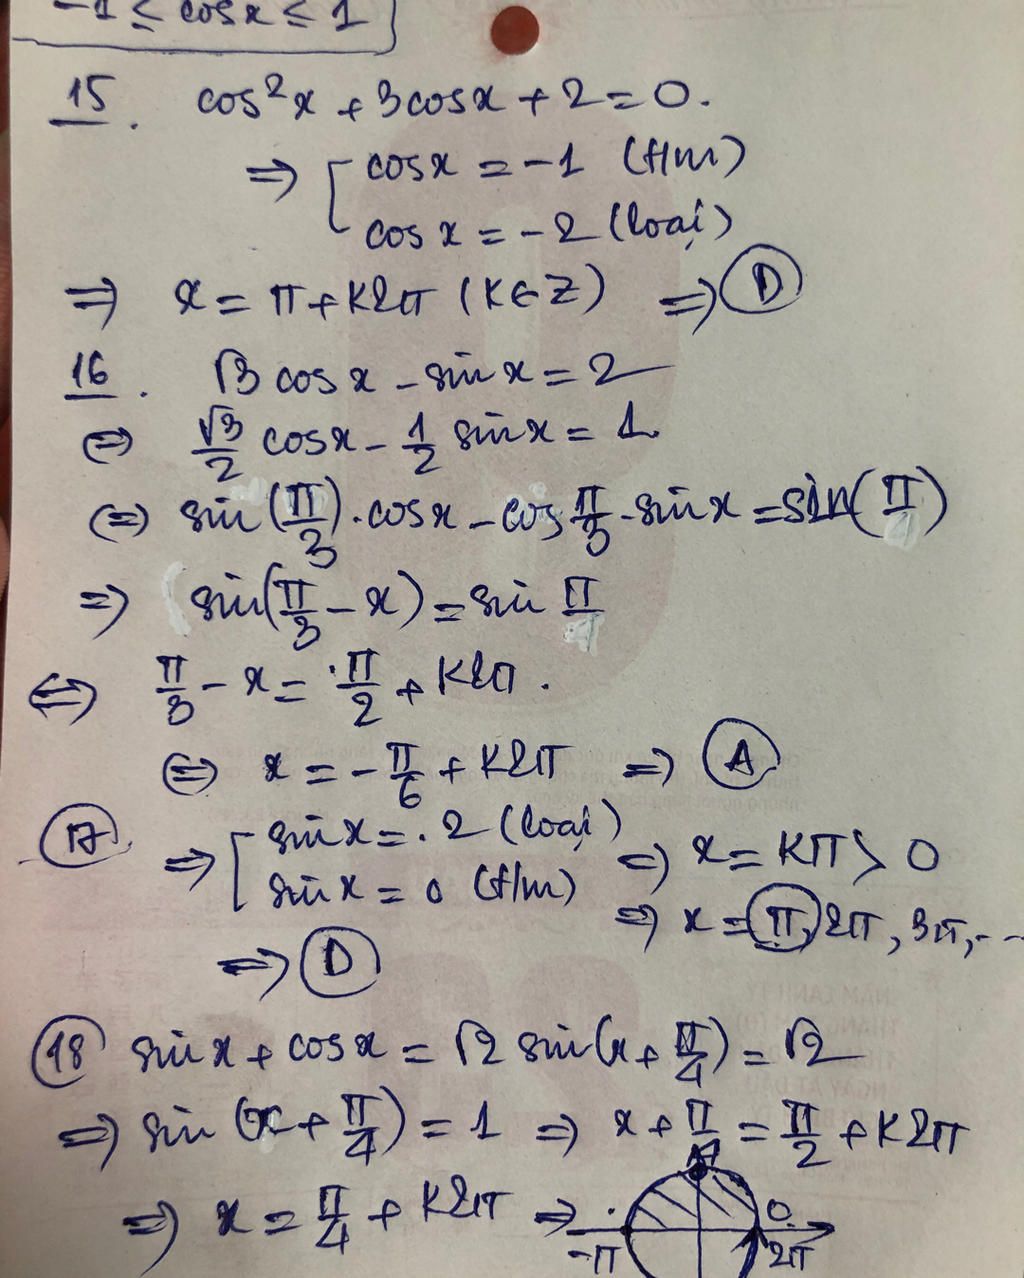 -1 ≤ cosx ≤ 1
15. cos²x + 3cosx + 2 = 0.
⇒ [ cosx = -1 (t/m)
cosx = -2 (loại)
⇒ x = π + k2π (k∈Z) ⇒ D
16. √3 cosx - sinx = 2
⇔ √3/2 cosx - 1/2 sinx = 1
⇔ sin(π/3).cosx - cos π/3 . sinx = sin(π/)
⇒ sin(π/3 - x) = sin π/
⇔ π/3 - x = π/2 + k2π.
⇔ x = -π/6 + k2π ⇒ A
17 ⇒ [ sinx = 2 (loại)
sinx = 0 (t/m) ⇒ x = kπ > 0
⇒ x = π, 2π, 3π, ...
⇒ D
18 sinx + cosx = √2 sin(x + π/4) = √2
⇒ sin(x + π/4) = 1 ⇒ x + π/4 = π/2 + k2π
⇒ x = π/4 + k2π ⇒
0
-π 2π